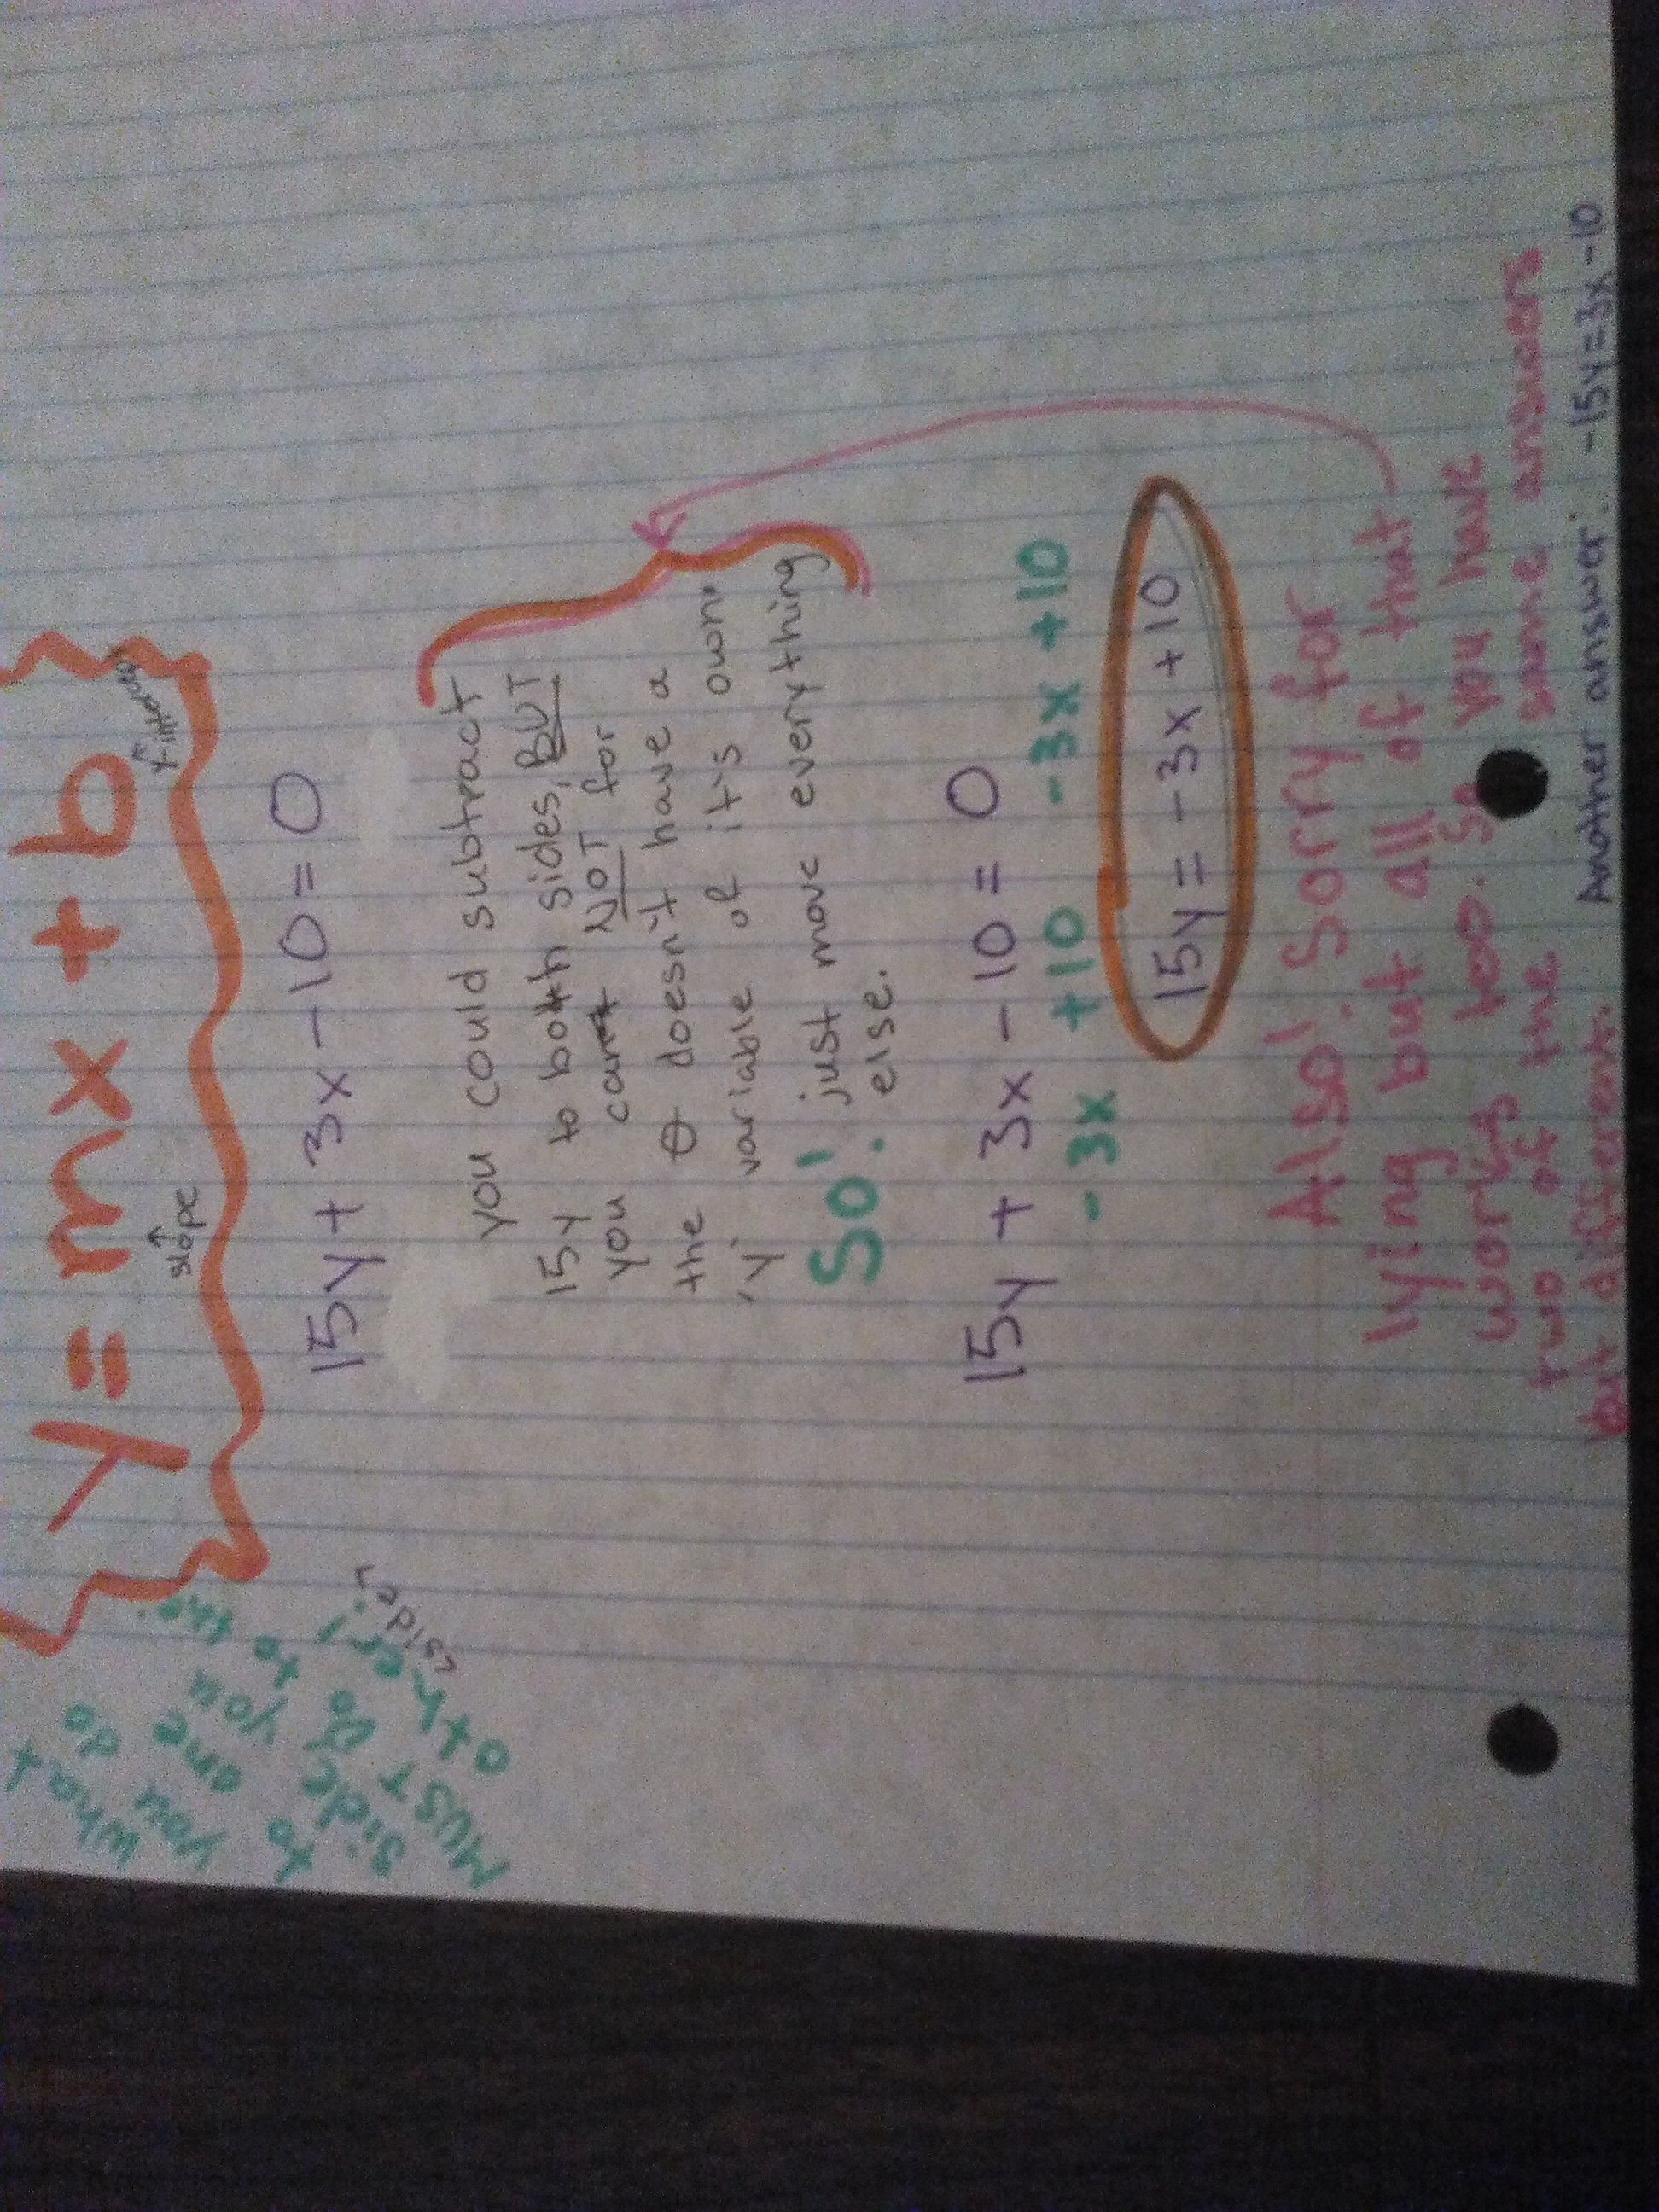 y = mx + b
↑
slope
↑
y-intercept
what
you do
to one
side you
MUST do to the
other!
↳side↲
15y + 3x - 10 = 0
you could subtract
15y to both sides, BUT
you can NOT for
the 0 doesn't have a
'y' variable of it's own"
So! just move everything
else.
15y + 3x - 10 = 0
-3x +10 -3x +10
15y = -3x + 10
Also! Sorry for
lying but all of that
works too. So you have
two of the same answers
but different.
Another answer: -15y=3x-10